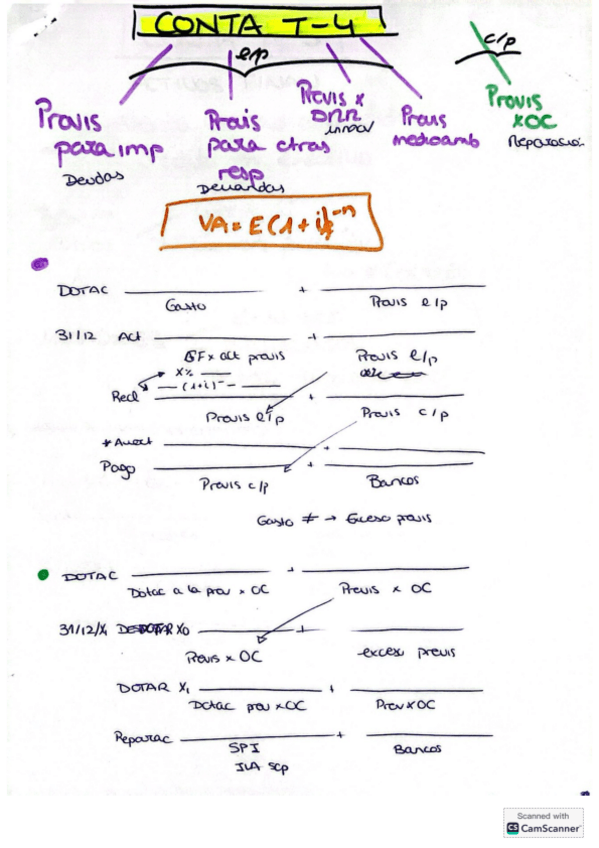 CONTA T-4
e/p
c/p
Provis para imp
Deudas
Provis para otras resp
Demandas
Provis x DRR
inmov
Provis medioamb
Provis x OC
Reparació.
VA = E(1+i)^-n
DOTAC + 
Gasto Provis e/p
31/12 Act +
GF x act provis Provis e/p
X%
(1+i)^-
Recl +
Provis e/p Provis c/p
+
Pago +
Provis c/p Bancos
Gasto ≠ → Exceso provis
DOTAC +
Dotac a la prov x OC Provis x OC
31/12/X1 DESDOTAR X0 +
Provis x OC exceso provis
DOTAR X1 +
Dotac prov x OC Prov x OC
Reparac +
SPI Bancos
IVA sop
Scanned with
CS CamScanner